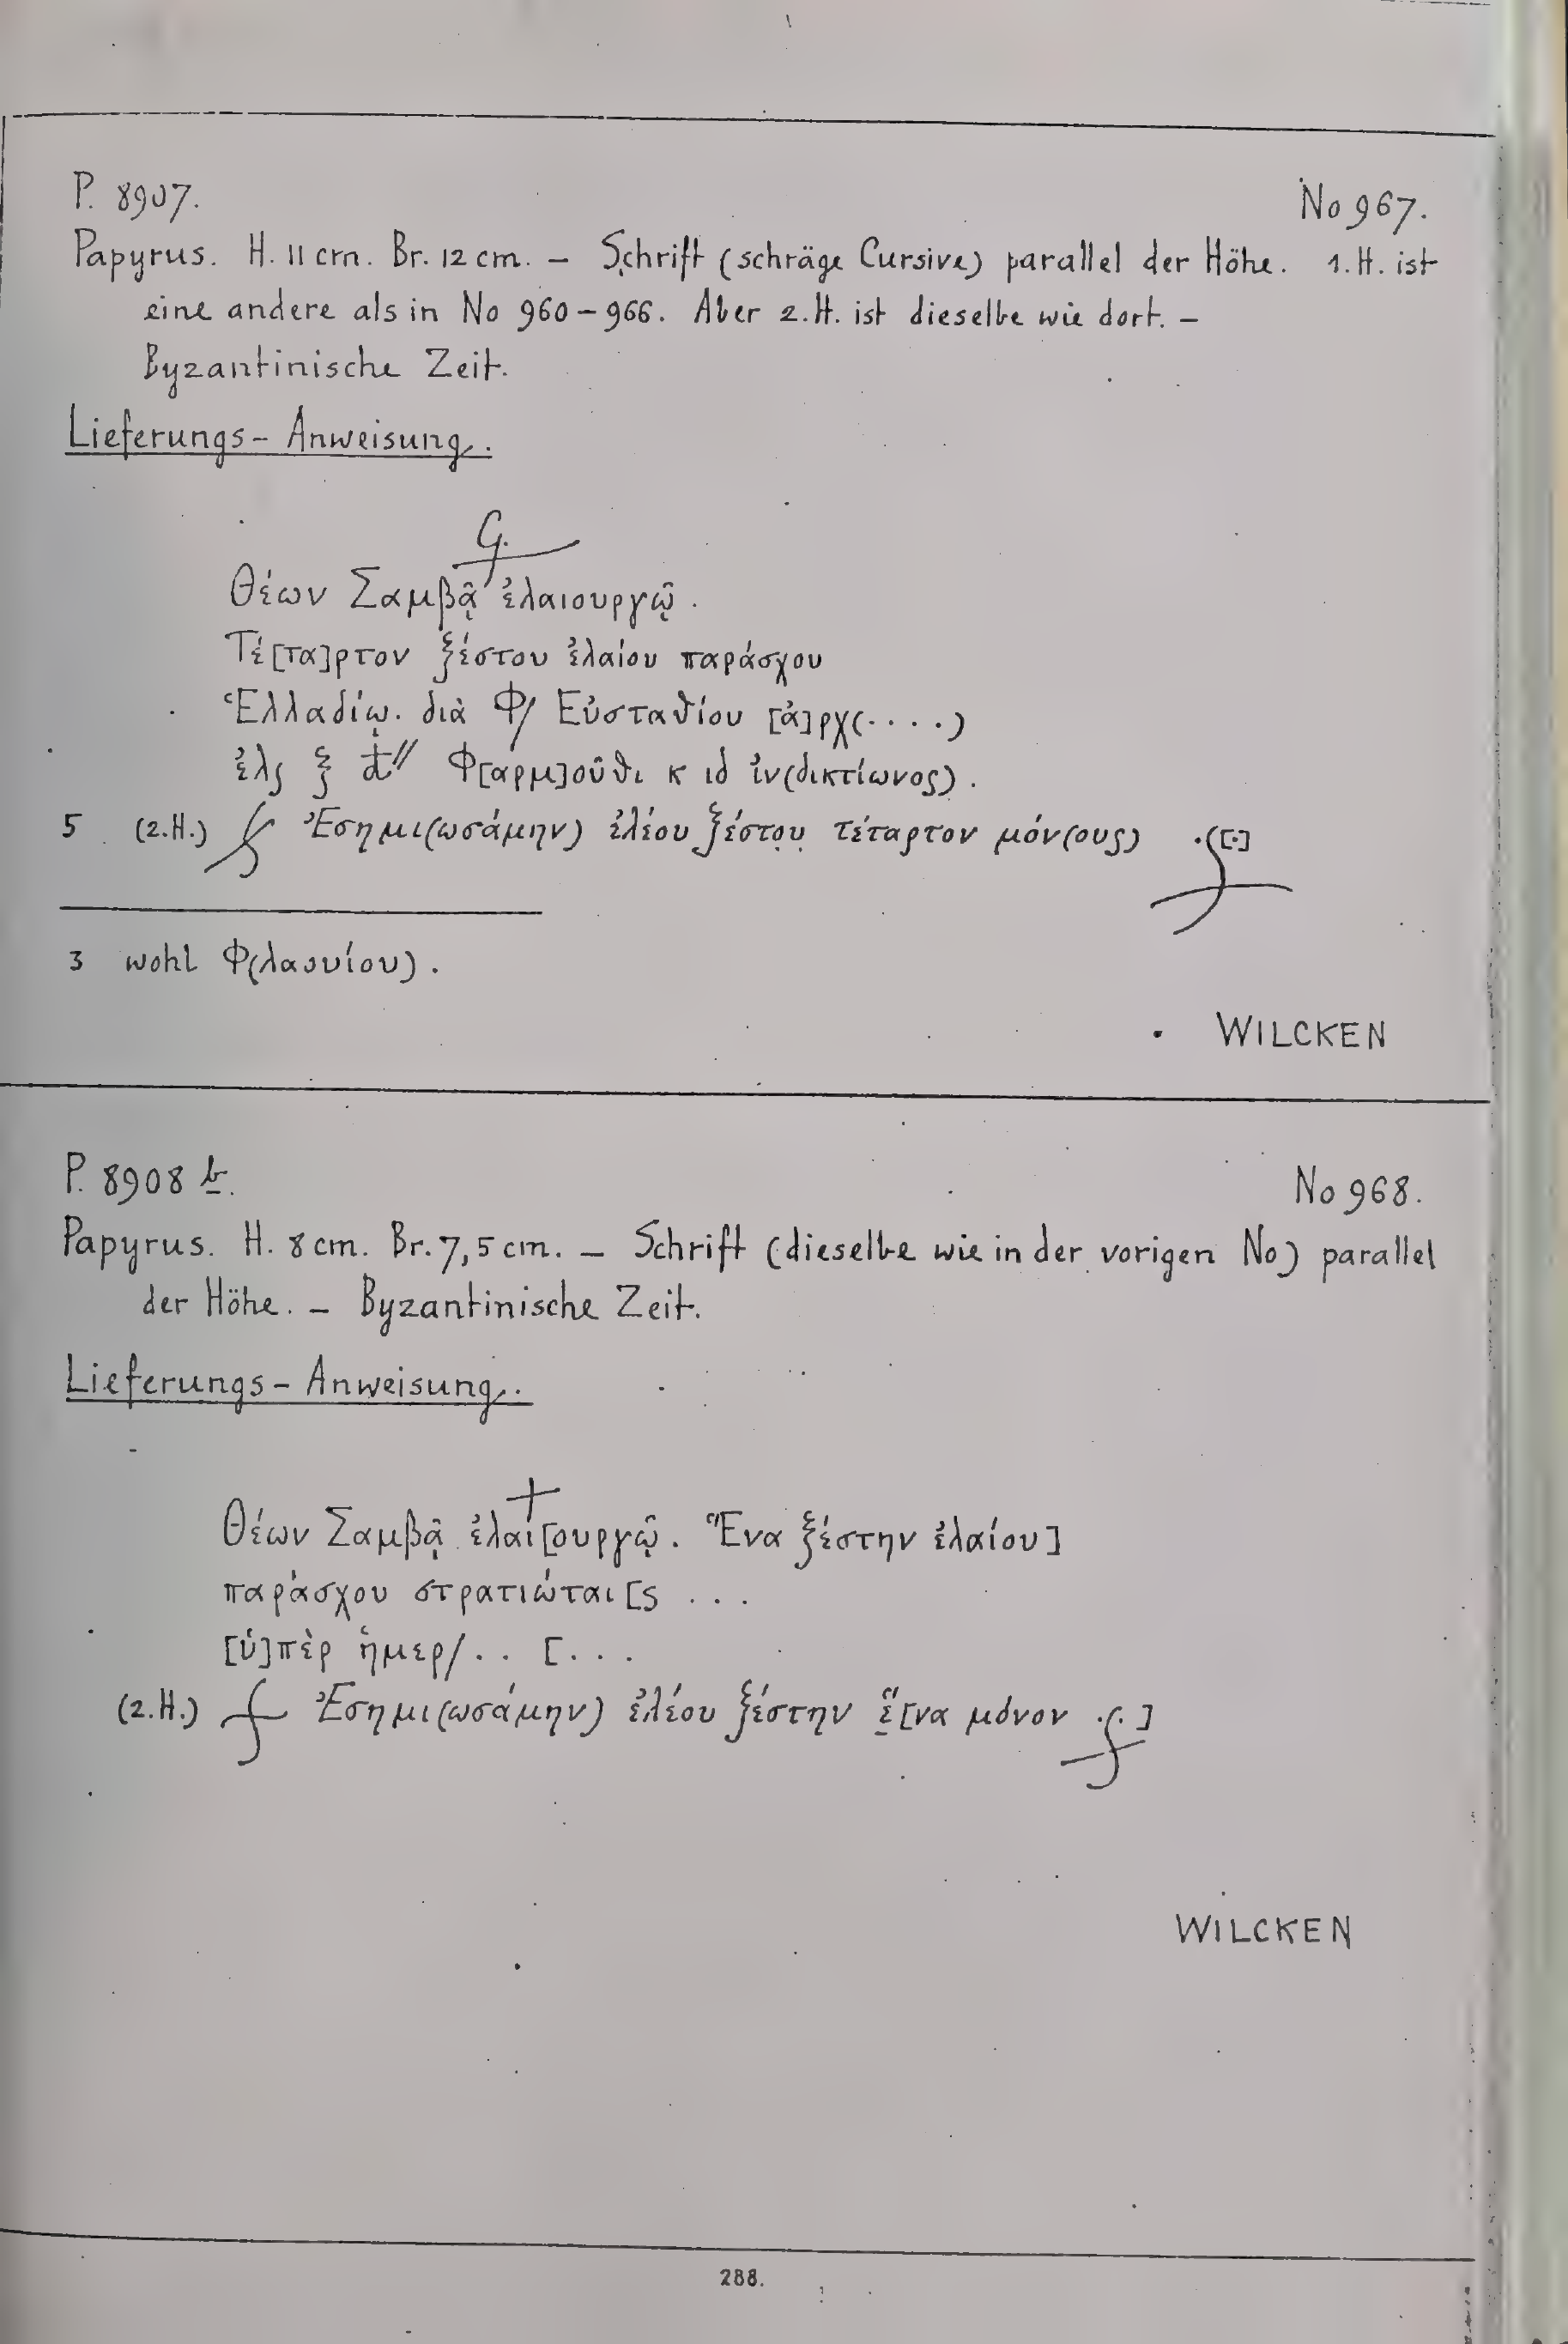 P. 8907.
No 967.
Papyrus. H. 11 cm. Br. 12 cm. – Schrift (schräge Cursive) parallel der Höhe. 1. H. ist
eine andere als in No 960–966. Aber 2. H. ist dieselbe wie dort. –
Byzantinische Zeit.
Lieferungs-Anweisung.
Θέων Σαμβᾷ ἐλαιουργῷ.
Τέ[τα]ρτον ξέστου ἐλαίου παράσχου
Ἑλλαδίῳ. διὰ Φ/ Εὐσταθίου [ἀ]ρχ(....)
ἐλς ξ δ′′ Φ[αρμ]οῦθι κ ιδ ἰν(δικτίωνος).
5 (2.H.) Ἐσημι(ωσάμην) ἐλέου ξέστο̣υ̣ τέταρτον μόν(ους) .([.]
3 wohl Φ(λαουίου).
WILCKEN
P. 8908 b.
No 968.
Papyrus. H. 8 cm. Br. 7,5 cm. – Schrift (dieselbe wie in der vorigen No) parallel
der Höhe. – Byzantinische Zeit.
Lieferungs-Anweisung.
Θέων Σαμβᾷ ἐλαι[ουργῷ. Ἕνα ξέστην ἐλαίου]
παράσχου στρατιώται[ς ...
[ὑ]πὲρ ἡμερ/.. [...
(2.H.) Ἐσημι(ωσάμην) ἐλέου ξέστην ἕ[να μόνον ..]
WILCKEN
288.